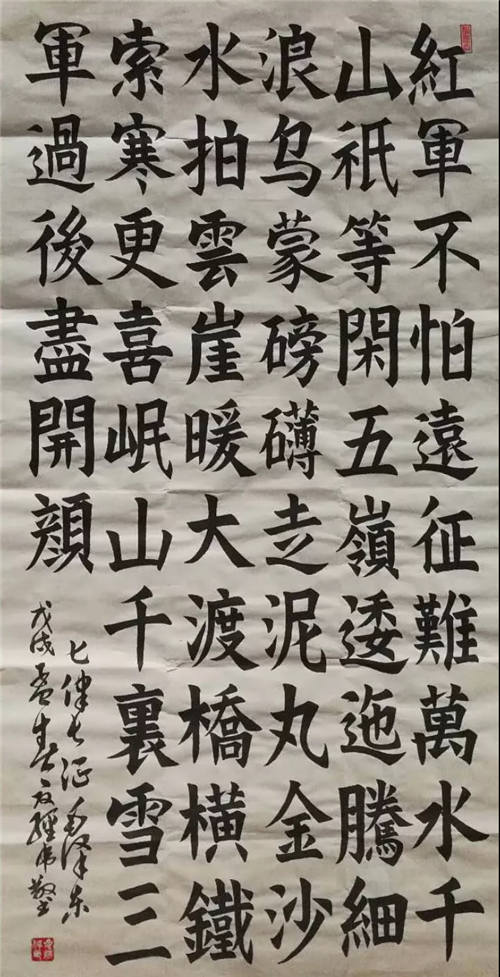 紅軍不怕遠征難萬水千
山祇等閑五嶺逶迤騰細
浪乌蒙磅礴走泥丸金沙
水拍雲崖暖大渡橋橫鐵
索寒更喜岷山千裏雪三
軍過後盡開顏
七律长征毛泽东
戊戌孟